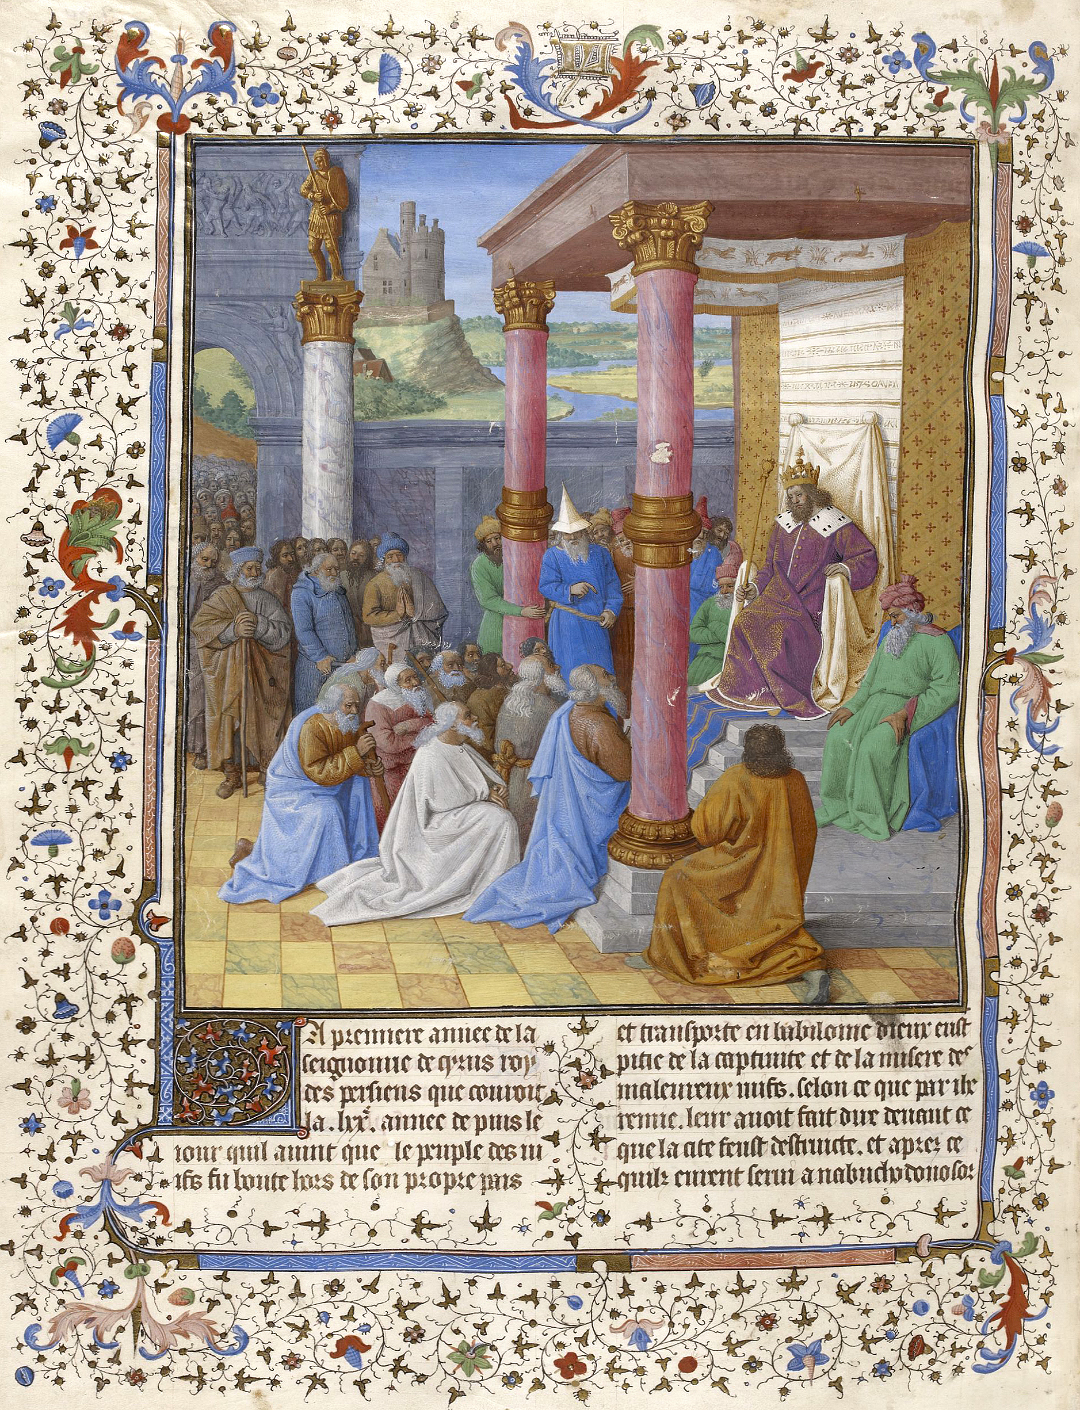 La premiere annee de la
seignourie de cyrus roy
des persiens que couroit
la .lxxe. annee de puis le
iour quil auint que le peuple des iu
ifs fu boute hors de son propre pais
et transporte en babilonie dieux eust
pitie de la captiuite et de la misere des
maleureux iuifs. selon ce que par ihe
remie. leur auoit fait dire deuant ce
que la cite feust destruicte. et aprez ce
quilz eurent serui a nabuchodonosor